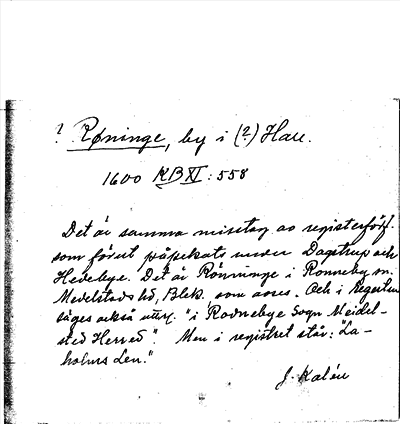 ? Røninge, by i (?) Hall.
1600 KB XI : 558
Det är samma misstag av registerförf.
som förut påpekats under Dagstrup och
Hedebye. Det är Rönninge i Ronneby sn.
Medelstads hd, Blek. som avses. Och i Regesten
säges också uttr. "i Rodnebye Sogn Meidel-
sted Herred". Men i registret står: "La-
holms Len."
J. Kalén